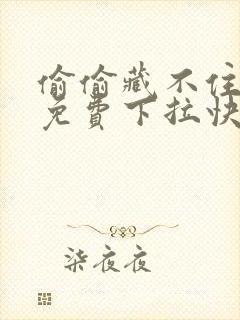 偷偷藏不住
免費下拉快
柒夜夜